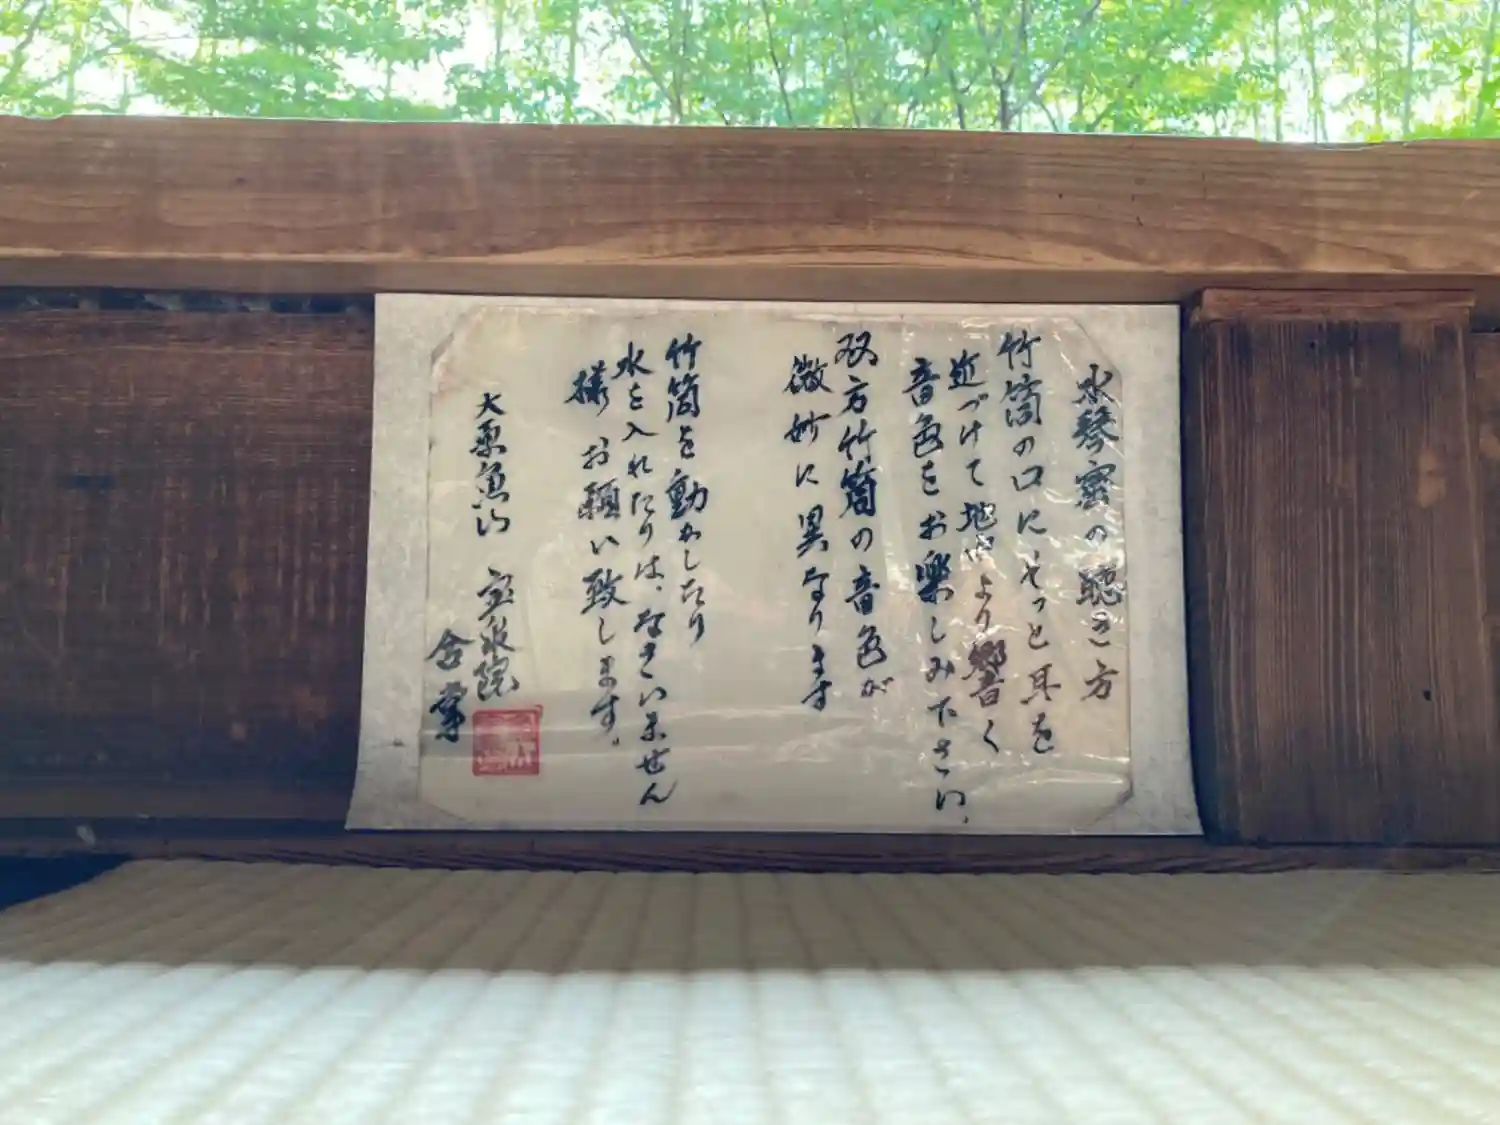 水琴窟の聴き方
竹筒の口にそっと耳を
近づけて地中より響く
音色をお楽しみ下さい。
双方竹筒の音色が
微妙に異なります
竹筒を動かしたり
水を入れたりは、なさいません
様お願い致します。
大原魚山 宝泉院
合掌